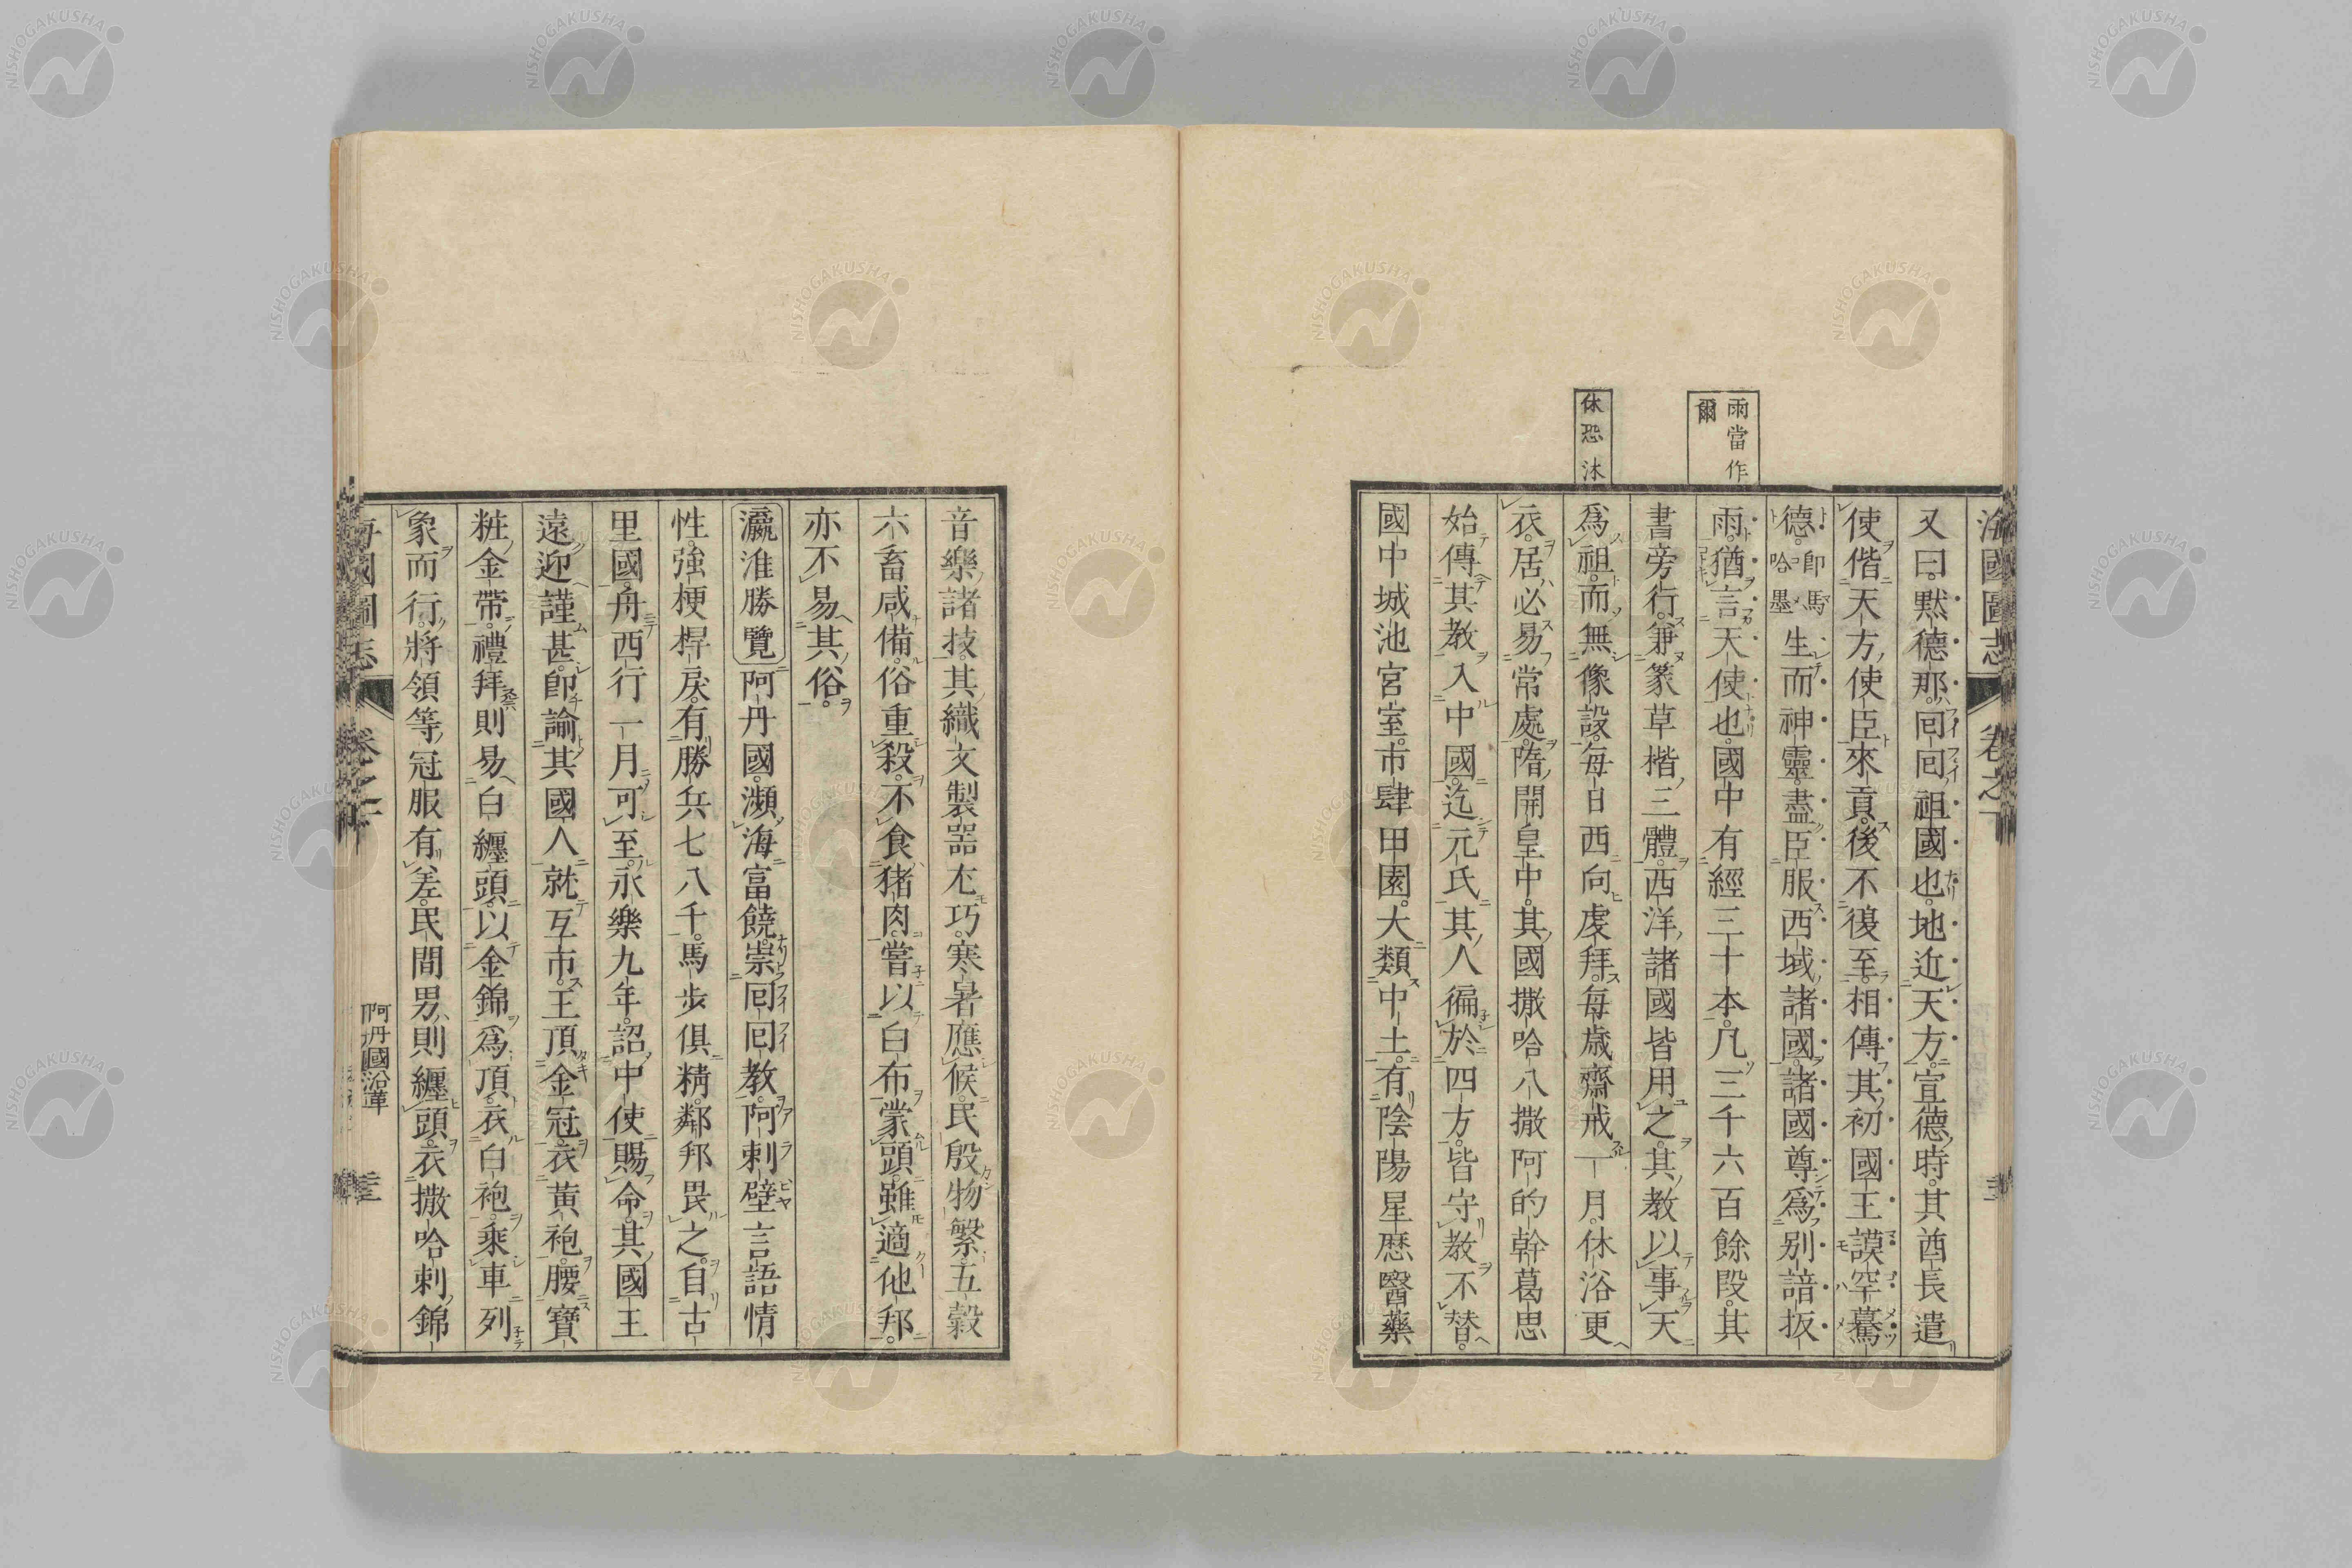 海國圖志 卷之
雨當作
爾
休恐沐
又曰默德那回回祖國也地近天方宣德時其酋長遣
使偕天方使臣來貢後不復至相傳其初國王謨罕驀
德即馬哈墨生而神靈盡臣服西域諸國諸國尊爲別諳扳
雨猶言天使也國中有經三十本凡三千六百餘段其
書旁行兼篆草楷三體西洋諸國皆用之其教以事天
爲祖而無像設每日西向虔拜每歲齋戒一月休浴更
衣居必易常處隋開皇中其國撒哈八撒阿的幹葛思
始傳其教入中國迄元氏其人徧於四方皆守教不替
國中城池宮室市肆田園大類中土有陰陽星歷醫藥
音樂諸技其織文製器尤巧寒暑應候民殷物繁五穀
六畜咸備俗重殺不食猪肉嘗以白布蒙頭雖適他邦
亦不易其俗
瀛淮勝覽阿丹國瀕海富饒崇回回教阿剌壁言語情
性強梗桿戾有勝兵七八千馬步俱精鄰邦畏之自古
里國舟西行一月可至永樂九年詔中使賜命其國王
遠迎謹甚即諭其國人就互市王頂金冠衣黃袍腰寶
粧金帶禮拜則易白纏頭以金錦爲頂衣白袍乘車列
象而行將領等冠服有差民間男則纏頭衣撒哈剌錦
海國圖志 卷之 阿丹國沿革
NISHOGAKUSHA